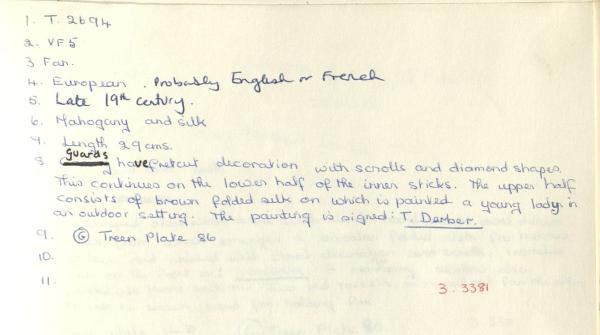 1. T. 2694
2. VF5
3 Fan.
4. European. Probably English or French
5. Late 19th century.
6. Mahogany and silk
7. Length 29 cms.
8. guards have fretcut decoration with scrolls and diamond shapes.
This continues on the lower half of the inner sticks. The upper half
consists of brown folded silk on which is painted a young lady in
an outdoor setting. The painting is signed: T. Derber.
9. G Treen Plate 86
10.
11.
3.3381